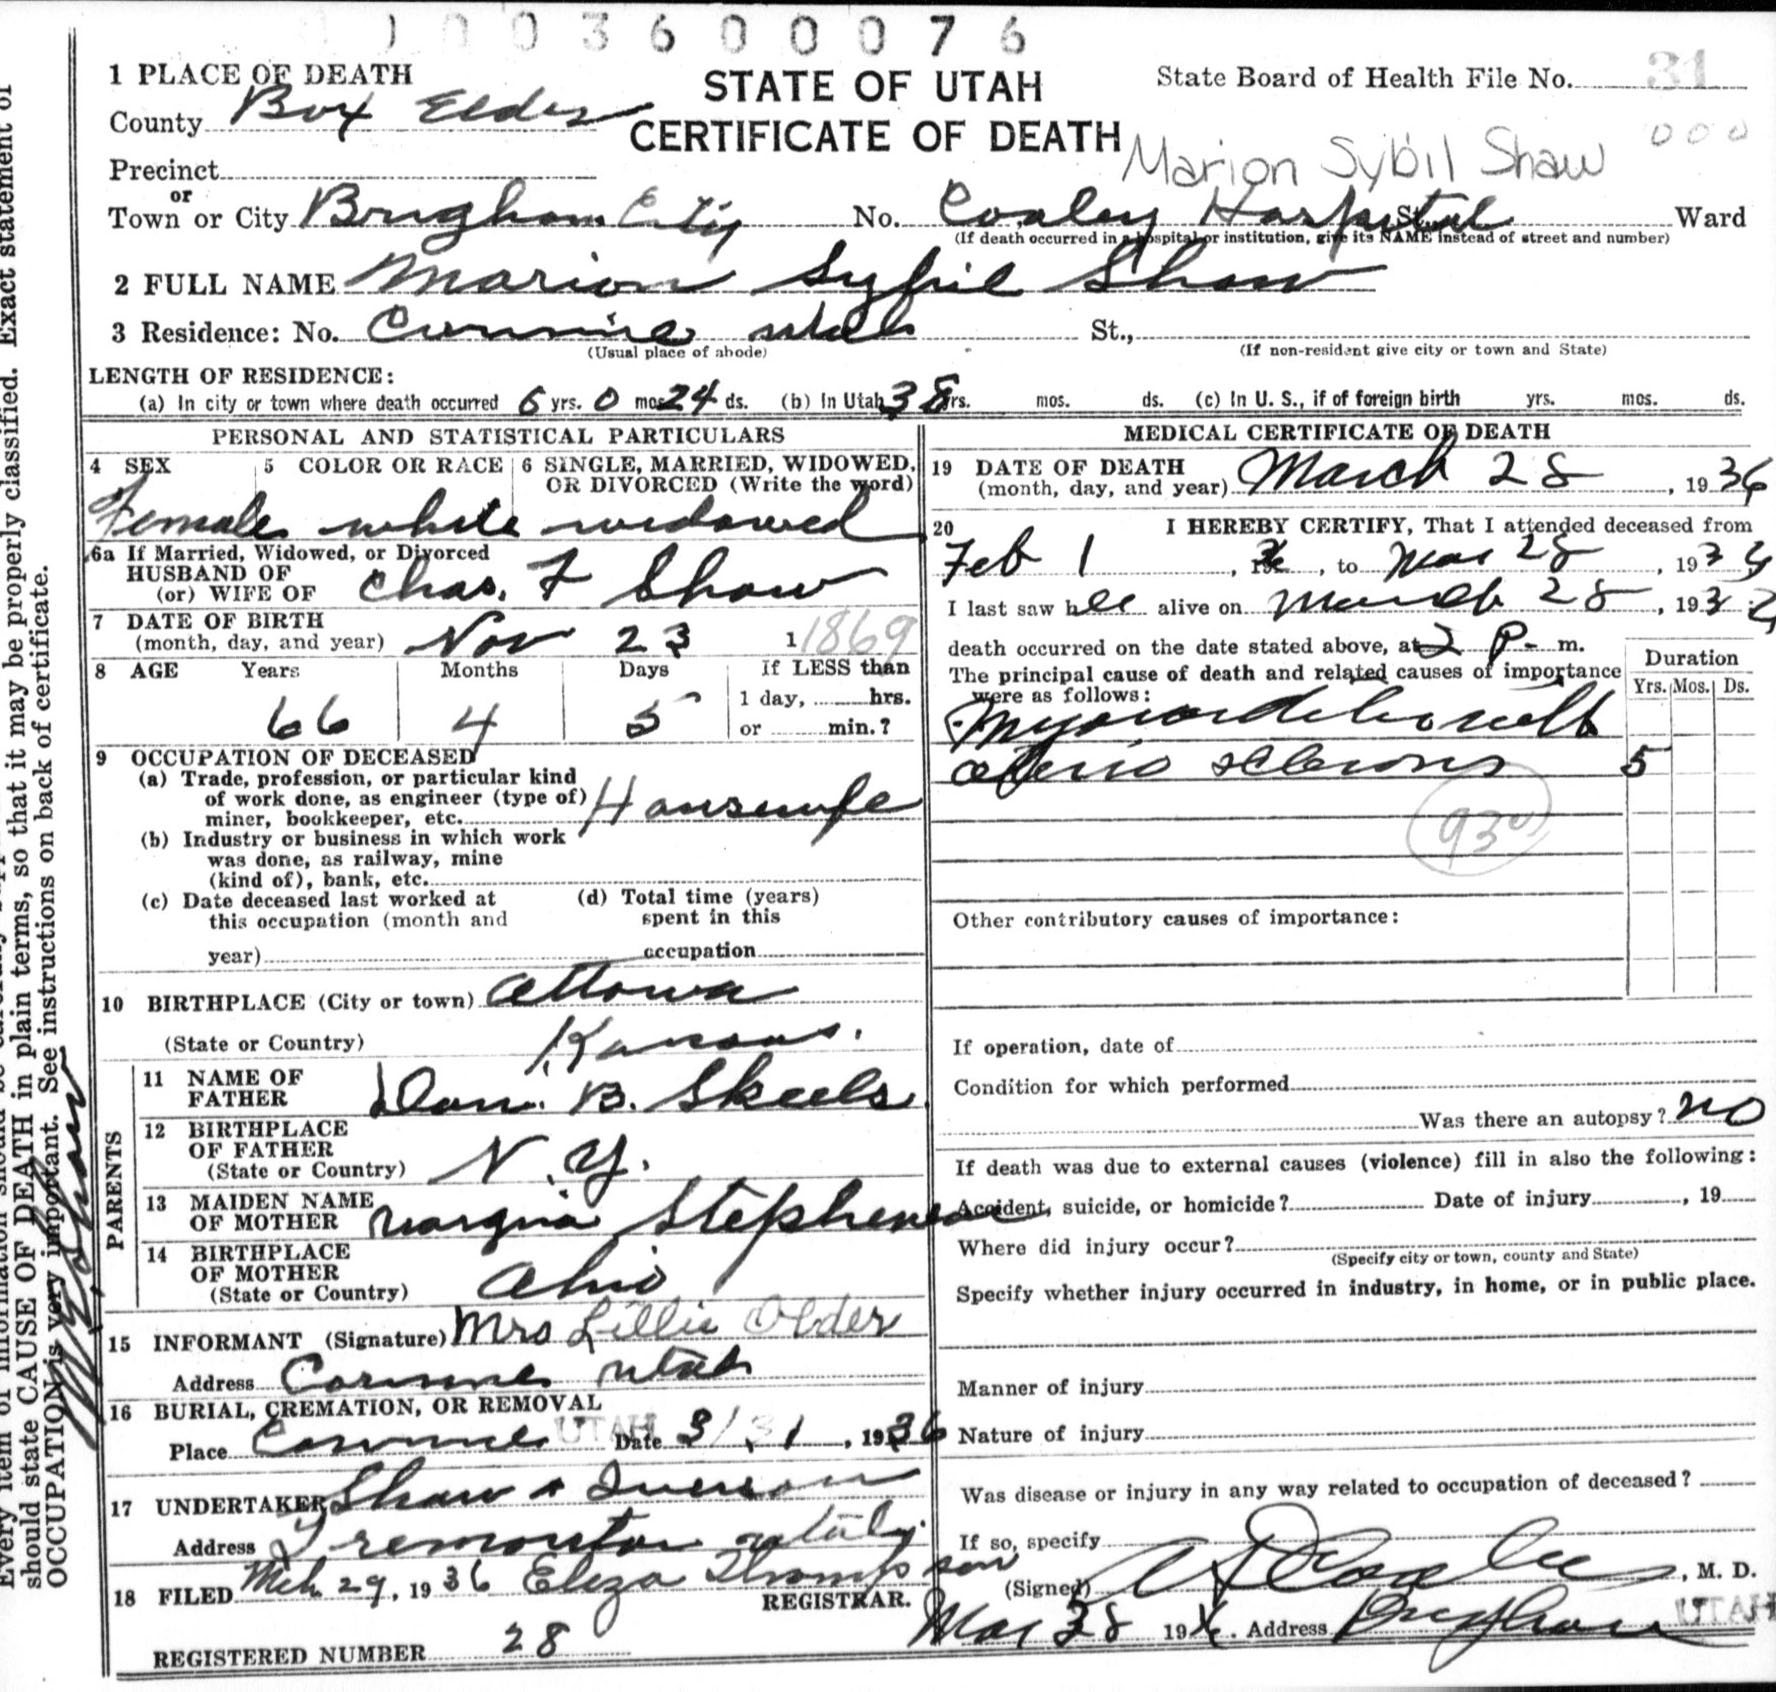 1003600076
1 PLACE OF DEATH
STATE OF UTAH
State Board of Health File No. 31
County Box Elder
CERTIFICATE OF DEATH
000
Marion Sybil Shaw
Precinct
or
Town or City Brigham City No. Cooley Hospital St. Ward
(If death occurred in a hospital or institution, give its NAME instead of street and number)
2 FULL NAME Marion Sybil Shaw
3 Residence: No. Corinne Utah St.,
(Usual place of abode) (If non-resident give city or town and State)
LENGTH OF RESIDENCE:
(a) In city or town where death occurred 6 yrs. 0 mos. 24 ds. (b) In Utah 38 yrs. mos. ds. (c) In U. S., if of foreign birth yrs. mos. ds.
PERSONAL AND STATISTICAL PARTICULARS
4 SEX 5 COLOR OR RACE 6 SINGLE, MARRIED, WIDOWED,
OR DIVORCED (Write the word)
Female white widowed
6a If Married, Widowed, or Divorced
HUSBAND OF
(or) WIFE OF Chas. F Shaw
7 DATE OF BIRTH
(month, day, and year) Nov 23 1 1869
8 AGE Years Months Days If LESS than
1 day, hrs.
66 4 5 or min.?
9 OCCUPATION OF DECEASED
(a) Trade, profession, or particular kind
of work done, as engineer (type of)
miner, bookkeeper, etc. Housewife
(b) Industry or business in which work
was done, as railway, mine
(kind of), bank, etc.
(c) Date deceased last worked at (d) Total time (years)
this occupation (month and spent in this
year) occupation
10 BIRTHPLACE (City or town) Ottowa
(State or Country) Kansas.
PARENTS
11 NAME OF
FATHER Dan. B. Skeels
12 BIRTHPLACE
OF FATHER
(State or Country) N. Y.
13 MAIDEN NAME
OF MOTHER Stephenson
14 BIRTHPLACE
OF MOTHER
(State or Country) Ohio
15 INFORMANT (Signature) Mrs Lillie Older
Address Corinne Utah
16 BURIAL, CREMATION, OR REMOVAL
Place Corinne UTAH Date 3/31, 1936
17 UNDERTAKER Shaw & Iverson
Address Tremonton Utah
18 FILED Mch 29, 1936 Eliza Thompson
REGISTRAR.
REGISTERED NUMBER 28
MEDICAL CERTIFICATE OF DEATH
19 DATE OF DEATH
(month, day, and year) March 28, 1936
20 I HEREBY CERTIFY, That I attended deceased from
Feb 1, 19 , to Mar 28, 1936
I last saw her alive on March 28, 193
death occurred on the date stated above, at 2 P. m.
The principal cause of death and related causes of importance
were as follows:
Duration
Yrs. Mos. Ds.
sclerosis 5
930
Other contributory causes of importance:
If operation, date of
Condition for which performed
Was there an autopsy? no
If death was due to external causes (violence) fill in also the following:
Accident, suicide, or homicide? Date of injury , 19
Where did injury occur?
(Specify city or town, county and State)
Specify whether injury occurred in industry, in home, or in public place.
Manner of injury
Nature of injury
Was disease or injury in any way related to occupation of deceased?
If so, specify
(Signed) , M. D.
Mar 28 19 . Address Brigham UTAH
Exact statement of
should state CAUSE OF DEATH in plain terms, so that it may be properly classified.
OCCUPATION is very important. See instructions on back of certificate.
Shaw